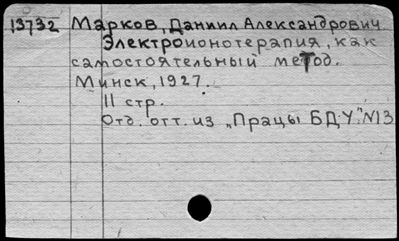 13732 Марков, Даниил Александрович
Электроионотерапия, как
самостоятельный метод.
Минск, 1927.
11 стр.
Отд. отт. из „Працы БДУ" N13